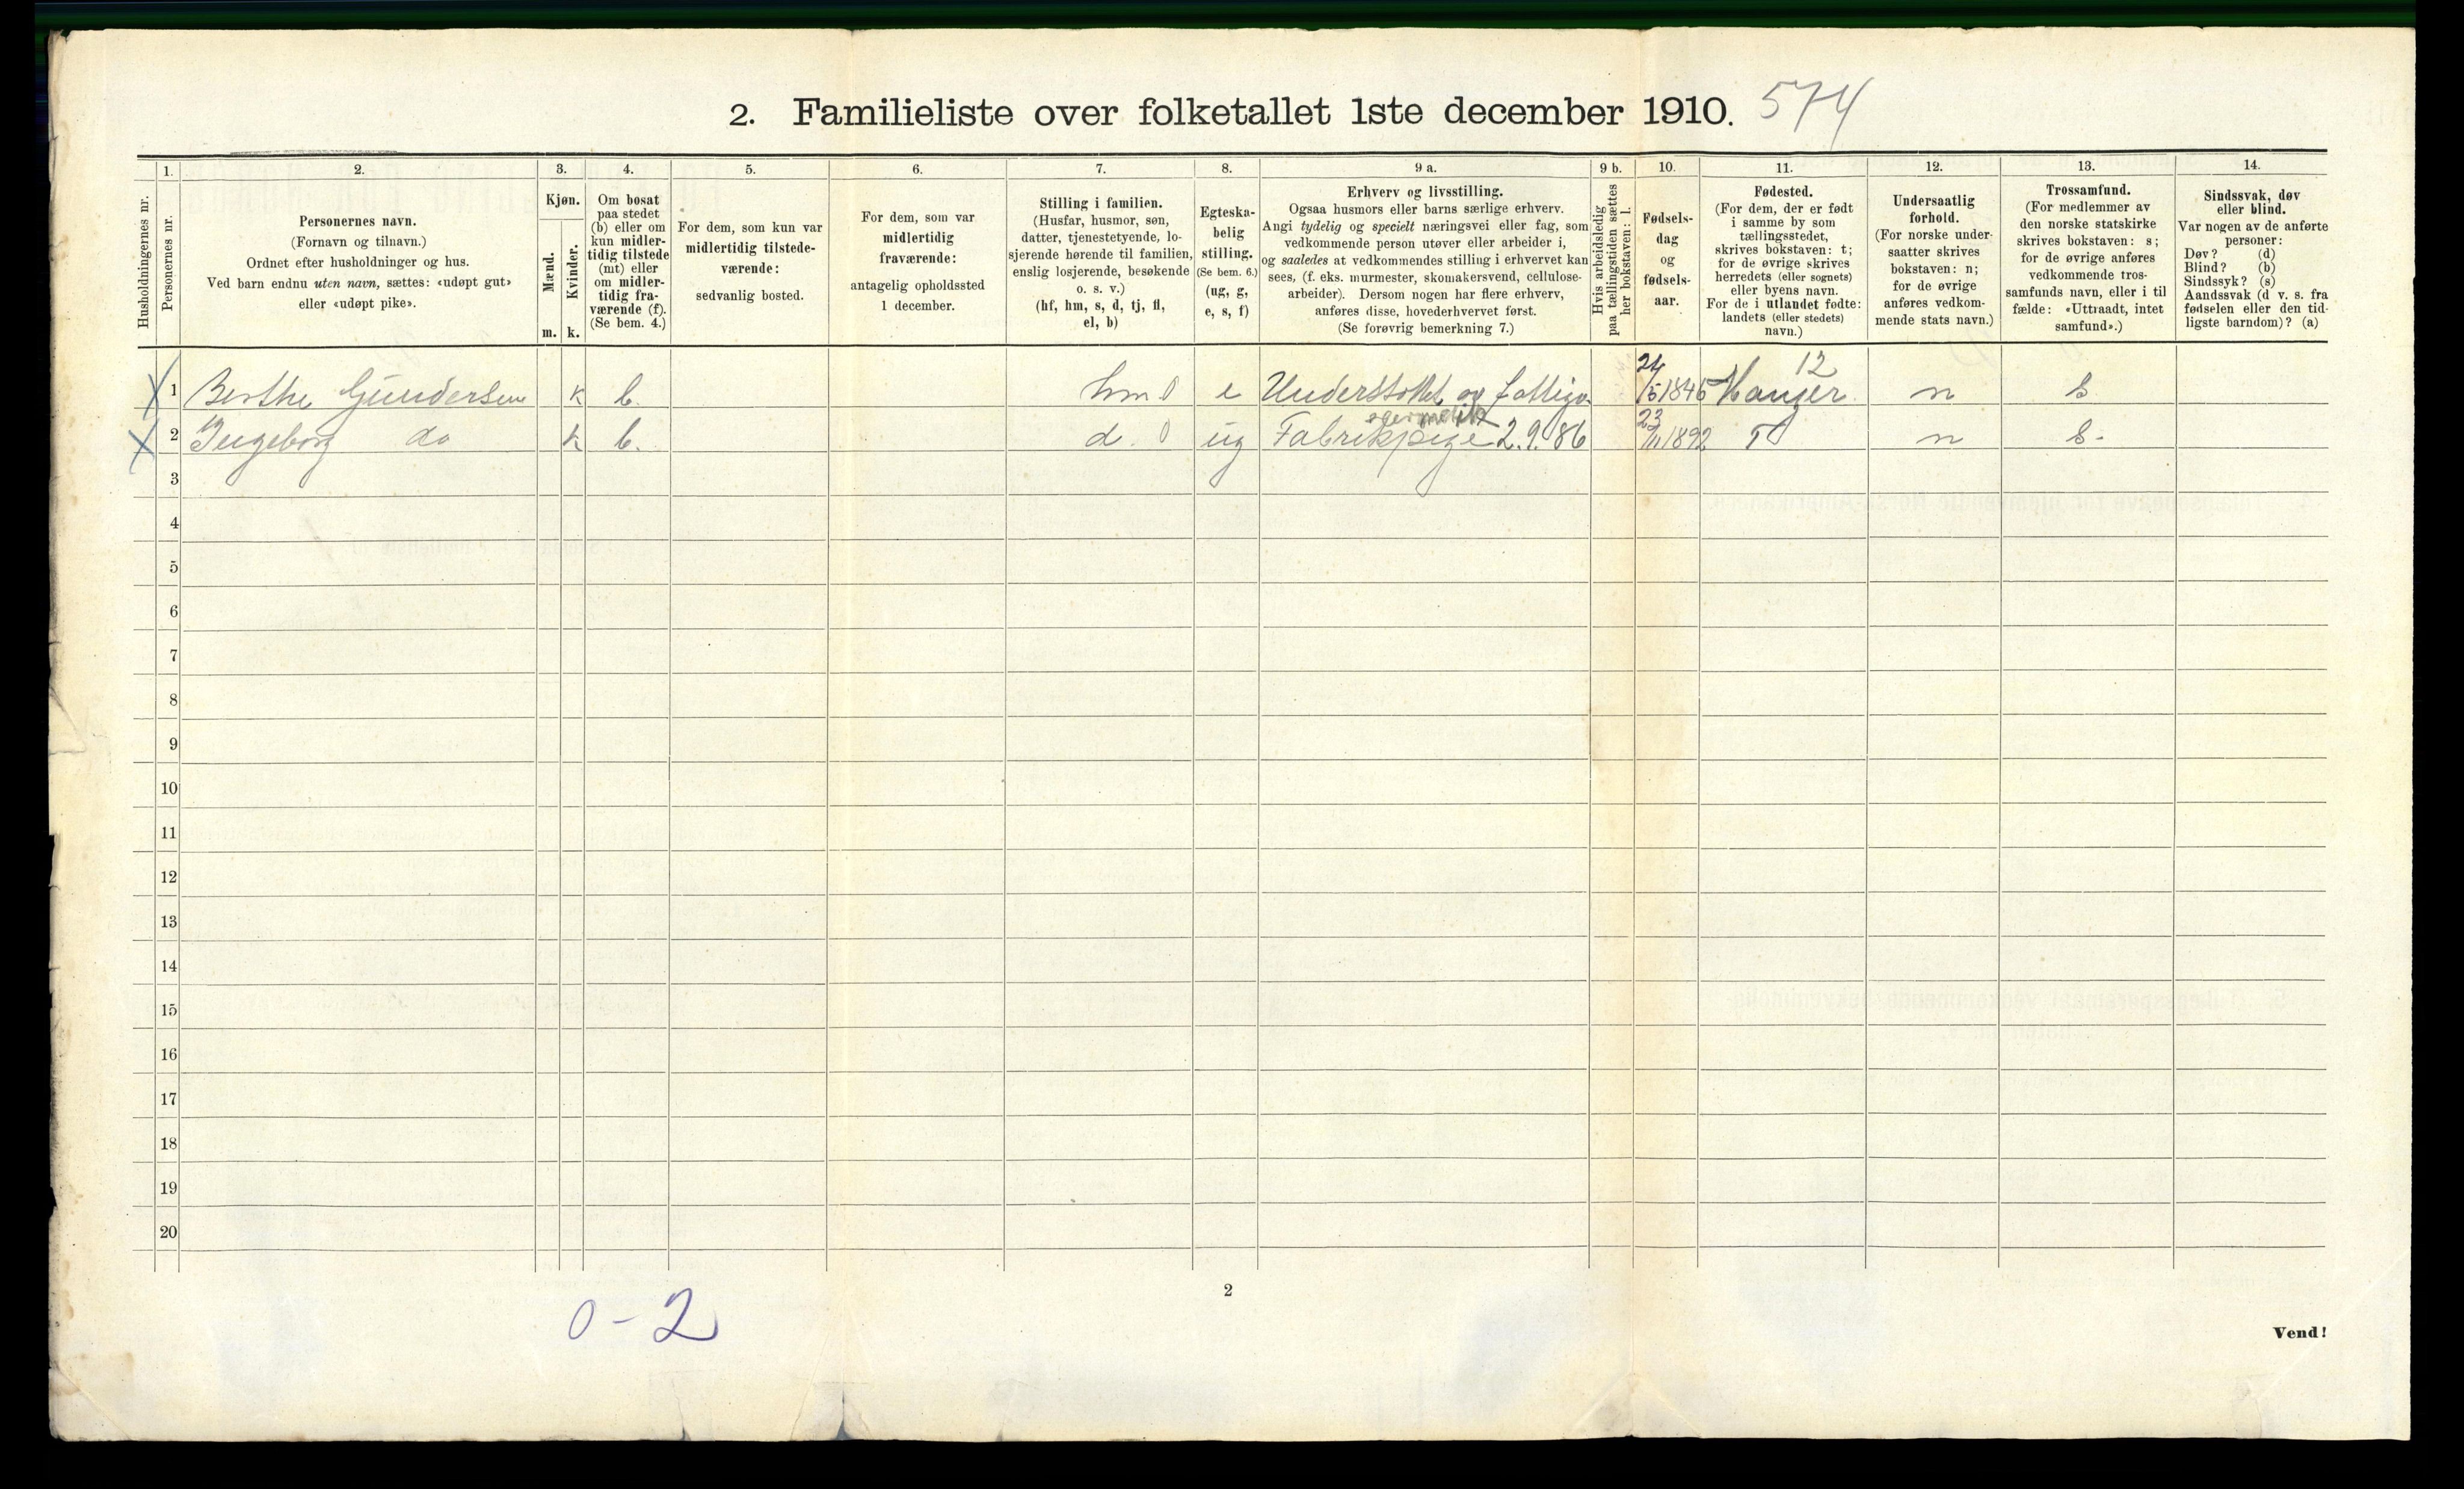 2. Familieliste over folketallet 1ste december 1910. 574
Husholdningernes nr.
1.
Personernes nr.
2.
Personernes navn.
(Fornavn og tilnavn.)
Ordnet efter husholdninger og hus.
Ved barn endnu uten navn, sættes: «udøpt gut»
eller «udøpt pike».
3.
Kjøn.
Mænd.
Kvinder.
m. k.
4.
Om bosat
paa stedet
(b) eller om
kun midler-
tidig tilstede
(mt) eller
om midler-
tidig fra-
værende (f).
(Se bem. 4.)
5.
For dem, som kun var
midlertidig tilstede-
værende:
sedvanlig bosted.
6.
For dem, som var
midlertidig
fraværende:
antagelig opholdssted
1 december.
7.
Stilling i familien.
(Husfar, husmor, søn,
datter, tjenestetyende, lo-
sjerende hørende til familien,
enslig losjerende, besøkende
o. s. v.)
(hf, hm, s, d, tj, fl,
el, b)
8.
Egteska-
belig
stilling.
(Se bem. 6.)
(ug, g,
e, s, f)
9 a.
Erhverv og livsstilling.
Ogsaa husmors eller barns særlige erhverv.
Angi tydelig og specielt næringsvei eller fag, som
vedkommende person utøver eller arbeider i,
og saaledes at vedkommendes stilling i erhvervet kan
sees, (f. eks. murmester, skomakersvend, cellulose-
arbeider). Dersom nogen har flere erhverv,
anføres disse, hovederhvervet først.
(Se forøvrig bemerkning 7.)
9 b.
Hvis arbeidsledig
paa tællingstiden sættes
her bokstaven: l.
10.
Fødsels-
dag
og
fødsels-
aar.
11.
Fødested.
(For dem, der er født
i samme by som
tællingsstedet,
skrives bokstaven: t;
for de øvrige skrives
herredets (eller sognets)
eller byens navn.
For de i utlandet fødte:
landets (eller stedets)
navn.)
12.
Undersaatlig
forhold.
(For norske under-
saatter skrives
bokstaven: n;
for de øvrige
anføres vedkom-
mende stats navn.)
13.
Trossamfund.
(For medlemmer av
den norske statskirke
skrives bokstaven: s;
for de øvrige anføres
vedkommende tros-
samfunds navn, eller i til
fælde: «Uttraadt, intet
samfund».)
14.
Sindssvak, døv
eller blind.
Var nogen av de anførte
personer:
Døv? (d)
Blind? (b)
Sindssyk? (s)
Aandssvak (d v. s. fra
fødselen eller den tid-
ligste barndom)? (a)
1 Berthe Gundersen k b. hm 0 e Understøttet og fattigv. 24/5 1845 Manger 12 n s
2 Ingeborg do k b. d. 0 ug Fabrikpige 2.9.86 23/11 1892 T n s.
3
4
5
6
7
8
9
10
11
12
13
14
15
16
17
18
19
20
2
0 - 2
Vend!